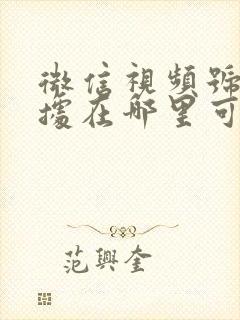 微信視頻號
據在哪里可
范興奎